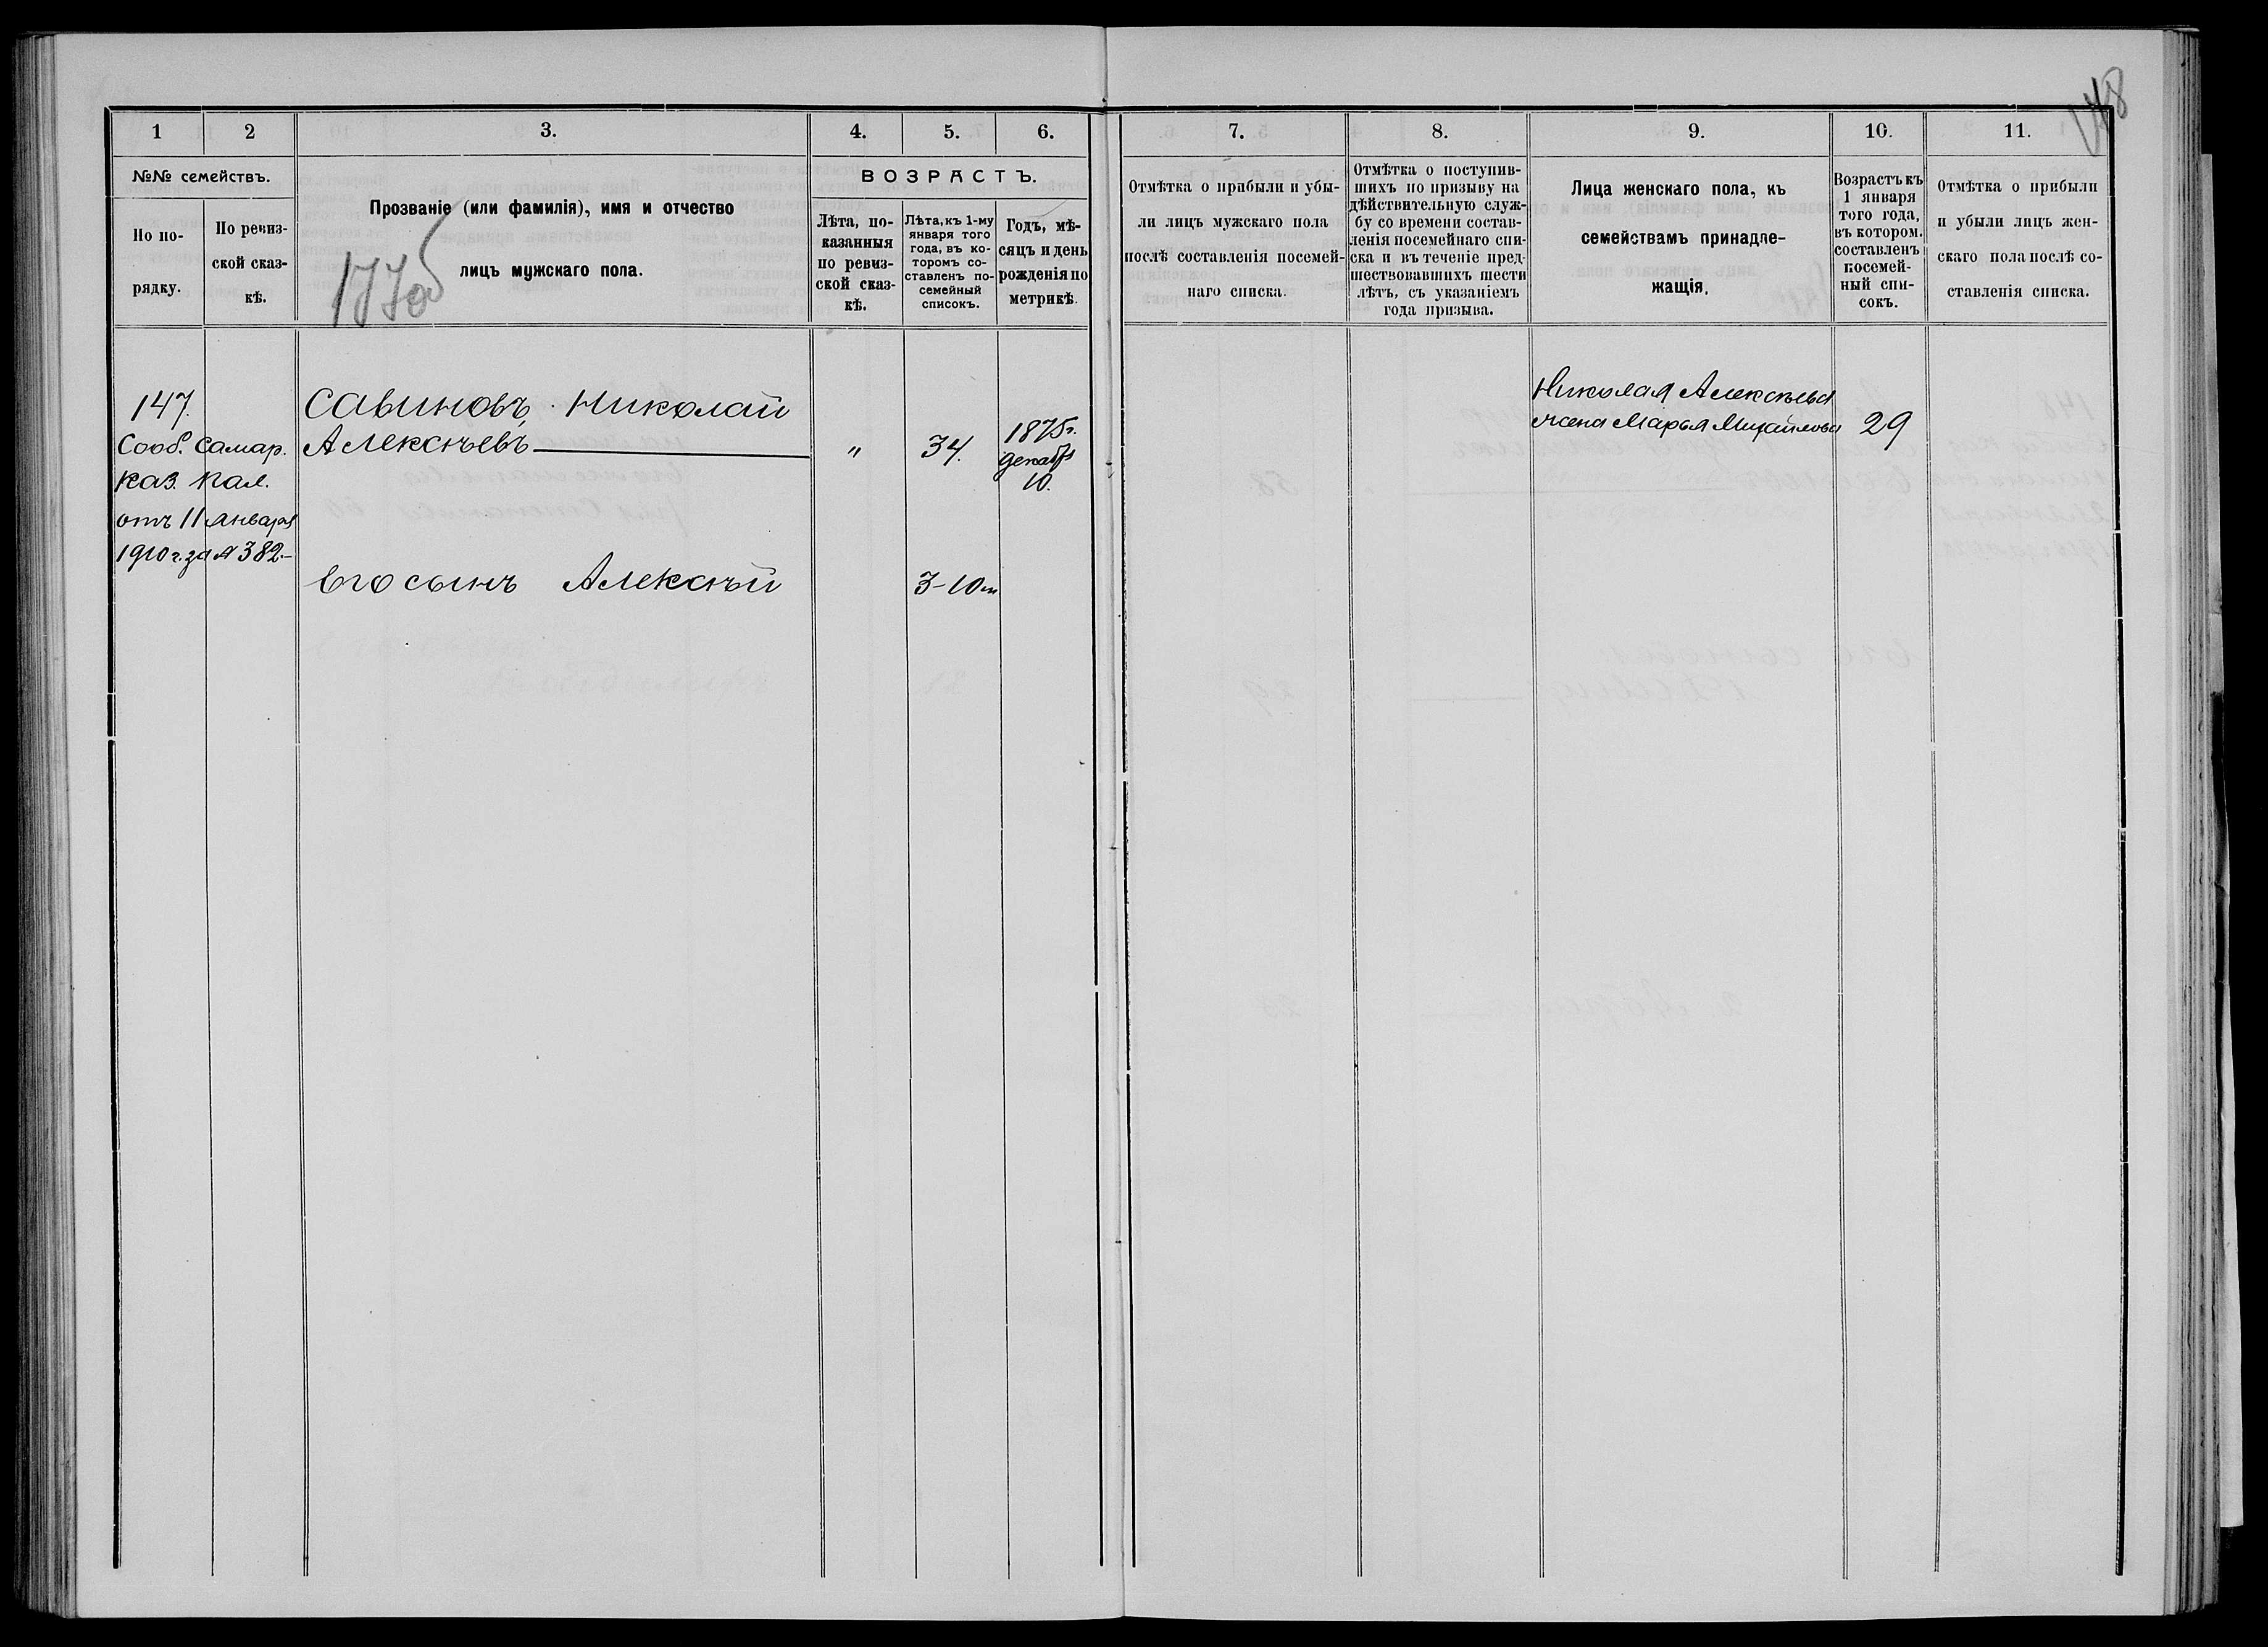 148
1 2 3. 4. 5. 6. 7. 8. 9. 10. 11.
№№ семействъ.
По по-
рядку.
По ревиз-
ской сказ-
кѣ.
Прозваніе (или фамилія), имя и отчество
лицъ мужскаго пола.
ВОЗРАСТЪ.
Лѣта, по-
казанныя
по ревиз-
ской сказ-
кѣ.
Лѣта, къ 1-му
января того
года, въ ко-
торомъ со-
ставленъ по-
семейный
списокъ.
Годъ, мѣ-
сяцъ и день
рожденія по
метрикѣ.
Отмѣтка о прибыли и убы-
ли лицъ мужскаго пола
послѣ составленія посемей-
наго списка.
Отмѣтка о поступив-
шихъ по призыву на
дѣйствительную служ-
бу со времени состав-
ленія посемейнаго спи-
ска и въ теченіе пред-
шествовавшихъ шести
лѣтъ, съ указаніемъ
года призыва.
Лица женскаго пола, къ
семействамъ принадле-
жащія.
Возрастъ къ
1 января
того года,
въ котором.
составленъ
посемей-
ный спи-
сокъ.
Отмѣтка о прибыли
и убыли лицъ жен-
скаго пола послѣ со-
ставленія списка.
147.
Сооб. Самар.
каз. пал.
отъ 11 января
1910 г. за № 382-
Савиновъ, Николай
Алексѣевъ
"
34.
1875 г.
декабря
10.
Его сынъ Алексѣй
3-10 м
Николая Алексѣева
жена Марья Михайлова
29